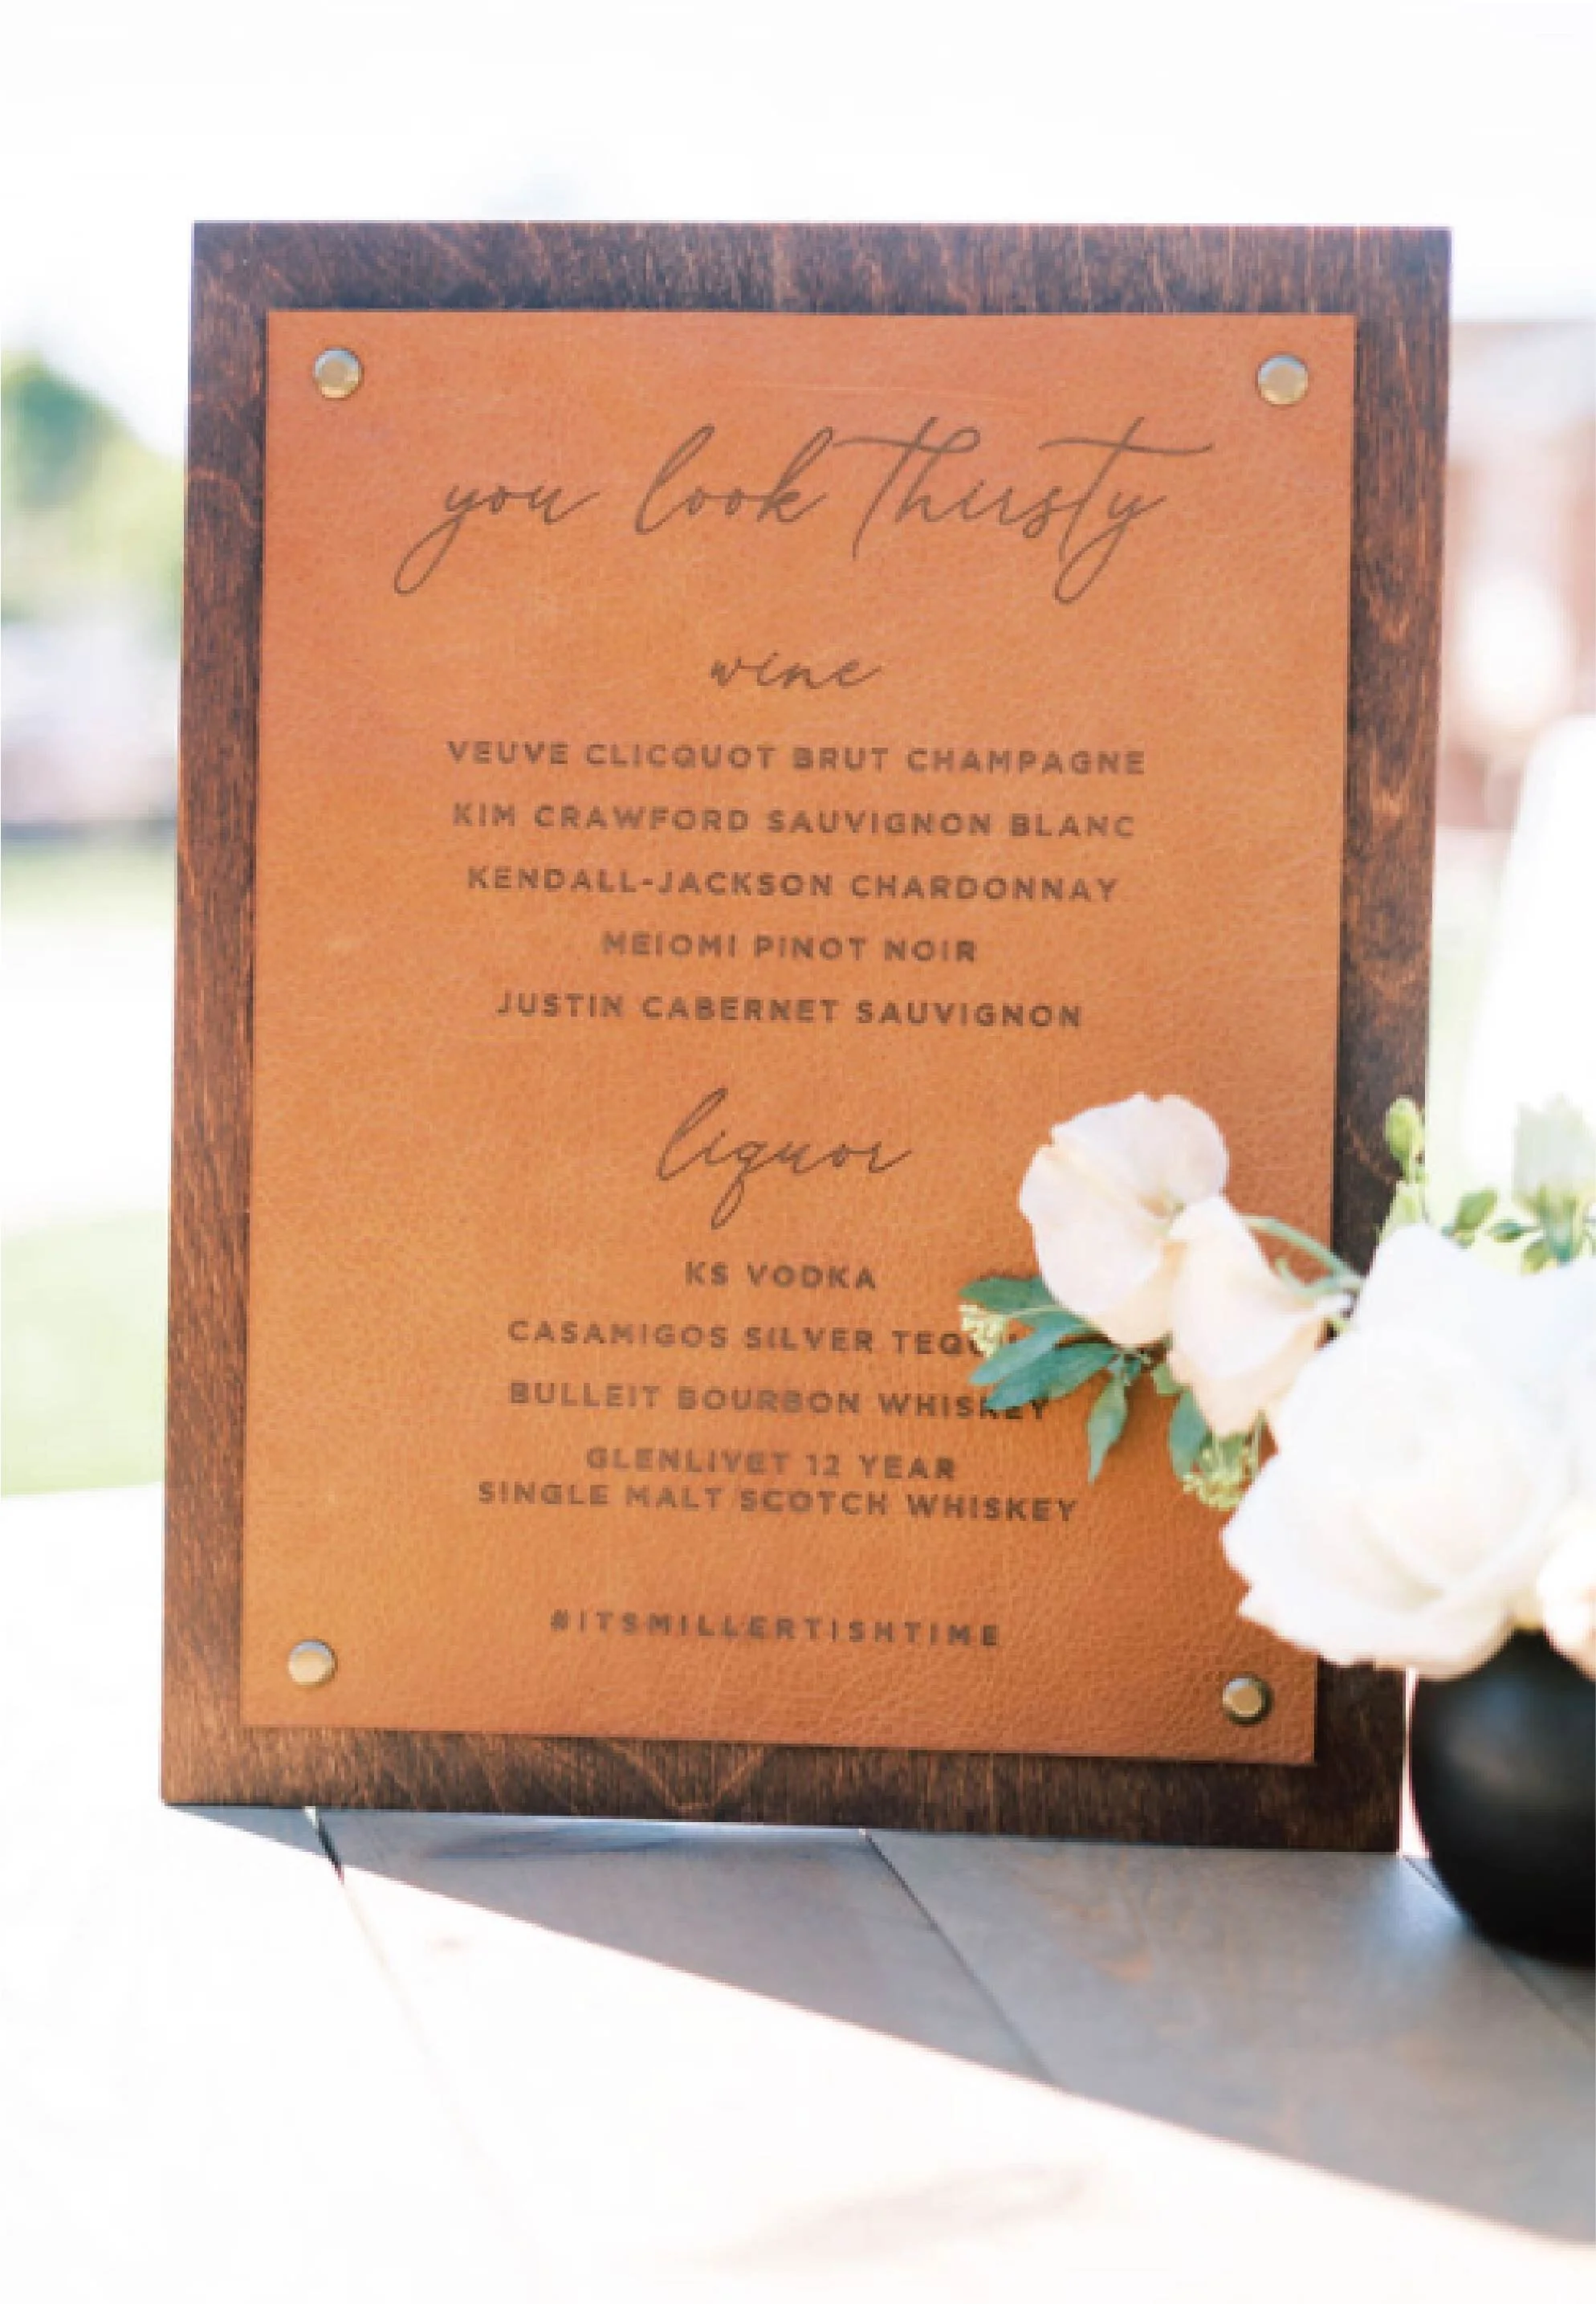 you look thirsty
wine
VEUVE CLICQUOT BRUT CHAMPAGNE
KIM CRAWFORD SAUVIGNON BLANC
KENDALL-JACKSON CHARDONNAY
MEIOMI PINOT NOIR
JUSTIN CABERNET SAUVIGNON
liquor
KS VODKA
CASAMIGOS SILVER
BULLEIT BOURBON WHISKEY
GLENLIVET 12 YEAR
SINGLE MALT SCOTCH WHISKEY
#ITSMILLERTISHTIME